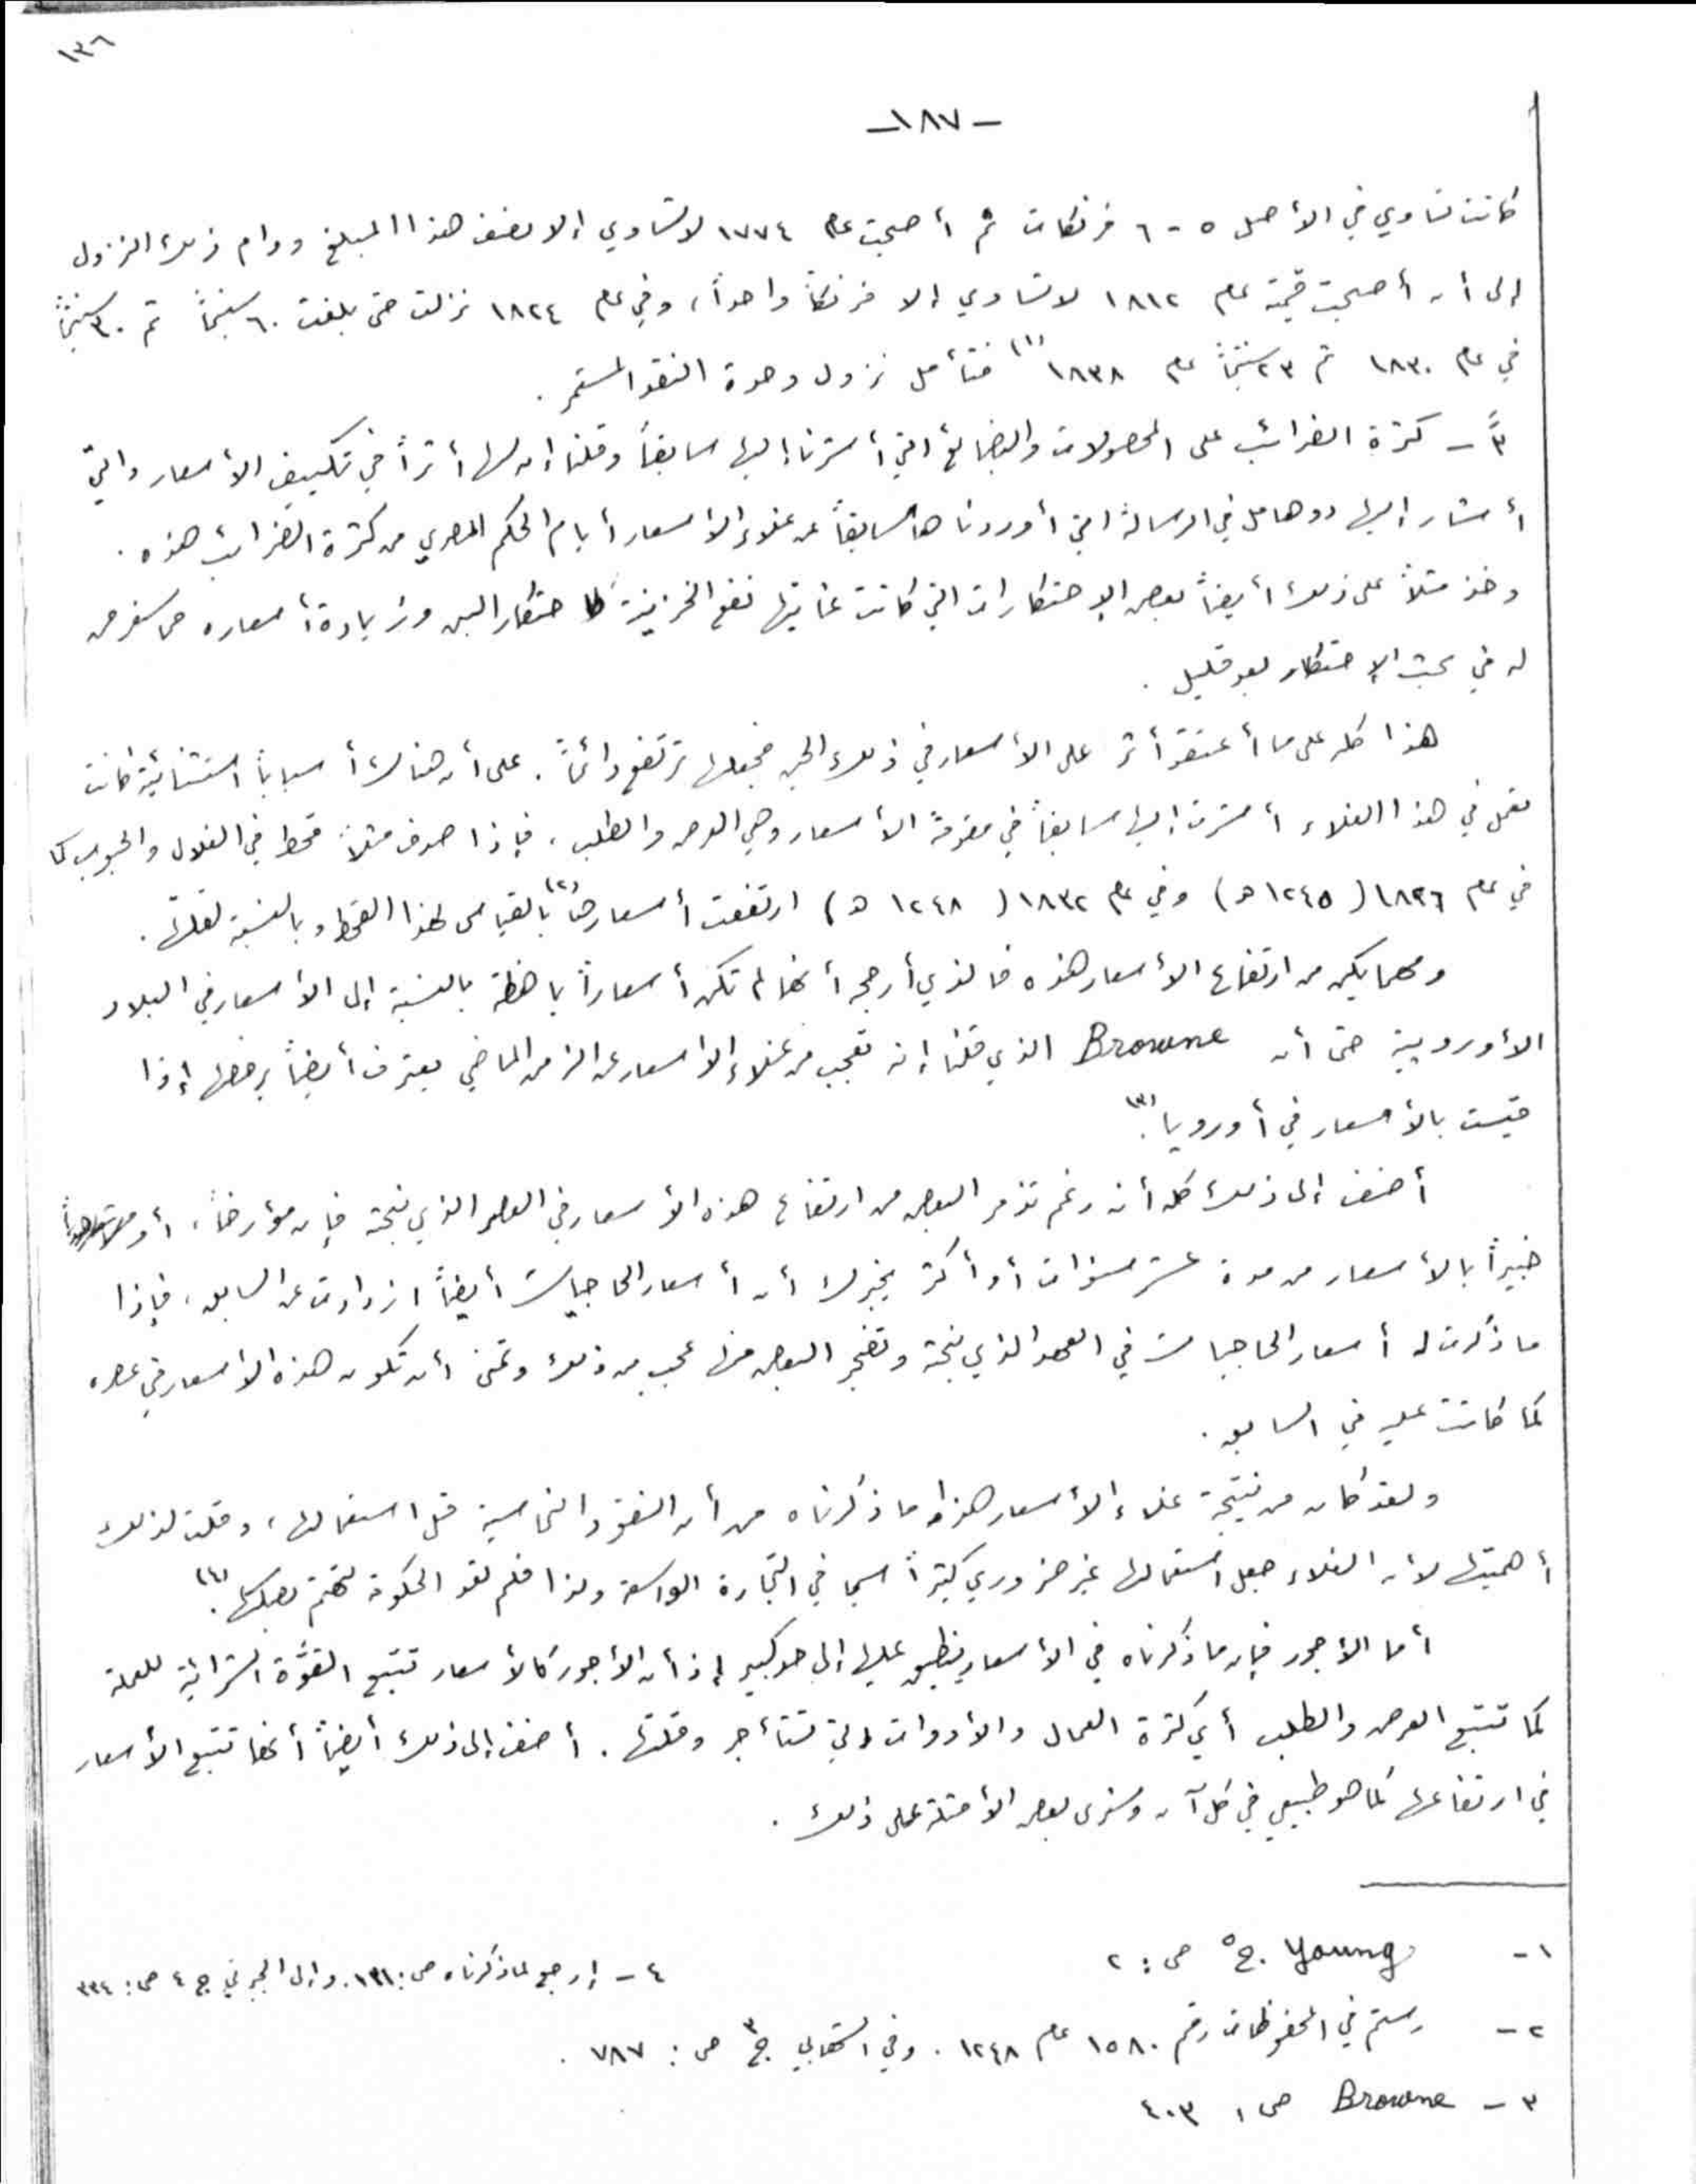 ١٣٦
-١٨٧-
كانت تساوي في الأصل ٥ - ٦ فرنكات ثم أصبحت عام ١٧٧٤ لا تساوي إلا نصف هذا المبلغ ودام ذلك النزول
إلى أن أصبحت قيمته عام ١٨١٢ لا تساوي إلا فرنكاً واحداً، وفي عام ١٨٢٤ نزلت حتى بلغت ٦٠ سنتيماً ثم ٣٠ سنتيماً
في عام ١٨٣٠ ثم ٢٣ سنتيماً عام ١٨٣٨ (١) فتأمل نزول وحدة النقد المستمر .
٣ً - كثرة الضرائب على المحصولات والبضائع التي أشرنا إليها سابقاً وقلنا إن لها أثراً في تكييف الأسعار والتي
أشار إليها دوهامل في الرسالة التي أوردناها سابقاً عن غلاء الأسعار أيام الحكم المصري من كثرة الضرائب هذه .
وخذ مثلاً على ذلك أيضاً بعض الإحتكارات التي كانت غايتها نفع الخزينة كاحتكار البن وزيادة أسعاره مما سنعرض
له في بحث الإحتكار بعد قليل .
هذا كله على ما أعتقد أثر على الأسعار في ذلك الحين فجعلها ترتفع دائماً . على أن هناك أسباباً استثنائية كانت
تعمل في هذا الغلاء أشرت إليها سابقاً في مقدمة الأسعار وهي العرض والطلب ، فإذا صدف مثلاً قحط في الغلال والحبوب كما
في عام ١٨٢٦ (١٢٤٥ هـ) وفي عام ١٨٣٢ (١٢٤٨ هـ) ارتفعت أسعارها (٢) بالقياس لهذا القحط وبالنسبة لقلتها .
ومهما يكن من ارتفاع الأسعار هذه فالذي أرجح أنها لم تكن أسعاراً باهظة بالنسبة إلى الأسعار في البلاد
الأوروبية حتى أن Browne الذي قلنا إنه تعجب من غلاء الأسعار عن الزمن الماضي يعترف أيضاً برخصها إذا
قيست بالأسعار في أوروبا (٣) .
أضف إلى ذلك كله أنه رغم تذمر البعض من ارتفاع هذه الأسعار في العصر الذي نبحثه فإن مؤرخاً ، أو
خبيراً بالأسعار من مدة عشر سنوات أو أكثر يخبرك أن أسعار الحاجيات أيضاً ازدادت عن السابق ، فإذا
ما ذكرت له أسعار الحاجيات في العهد الذي نبحثه وتضجر البعض منها عجب من ذلك وتمنى أن تكون هذه الأسعار في عصره
كما كانت عليه في السابق .
ولقد كان من نتيجة غلاء الأسعار هذا ما ذكرناه من أن النقود النحاسية قل استعمالها ، وقلت لذلك
أهميتها لأن الغلاء جعل استعمالها غير ضروري كثيراً سيما في التجارة الواسعة ولذا فلم تعد الحكومة تهتم بصكها (٤) .
أما الأجور فإن ما ذكرناه في الأسعار ينطبق عليها إلى حد كبير إذ أن الأجور كالأسعار تتبع القوَّة الشرائية للعملة
كما تتبع العرض والطلب أي كثرة العمال والأدوات التي تستأجر وقلتها . أضف إلى ذلك أيضاً أنها تتبع الأسعار
في ارتفاعها كما هو طبيعي في كل آن وسنرى بعض الأمثلة على ذلك .
١ - Young ج. ٥ ص : ٢
٢ - رستم في المحفوظات رقم ١٥٨٠ عام ١٢٤٨ . وفي الشهابي ج ٣ ص : ٧٨٧ .
٣ - Browne ص : ٤٠٣
٤ - إرجع لما ذكرناه ص : ١٣١. وإلى الجبرتي ج ٤ ص : ٣٣٤